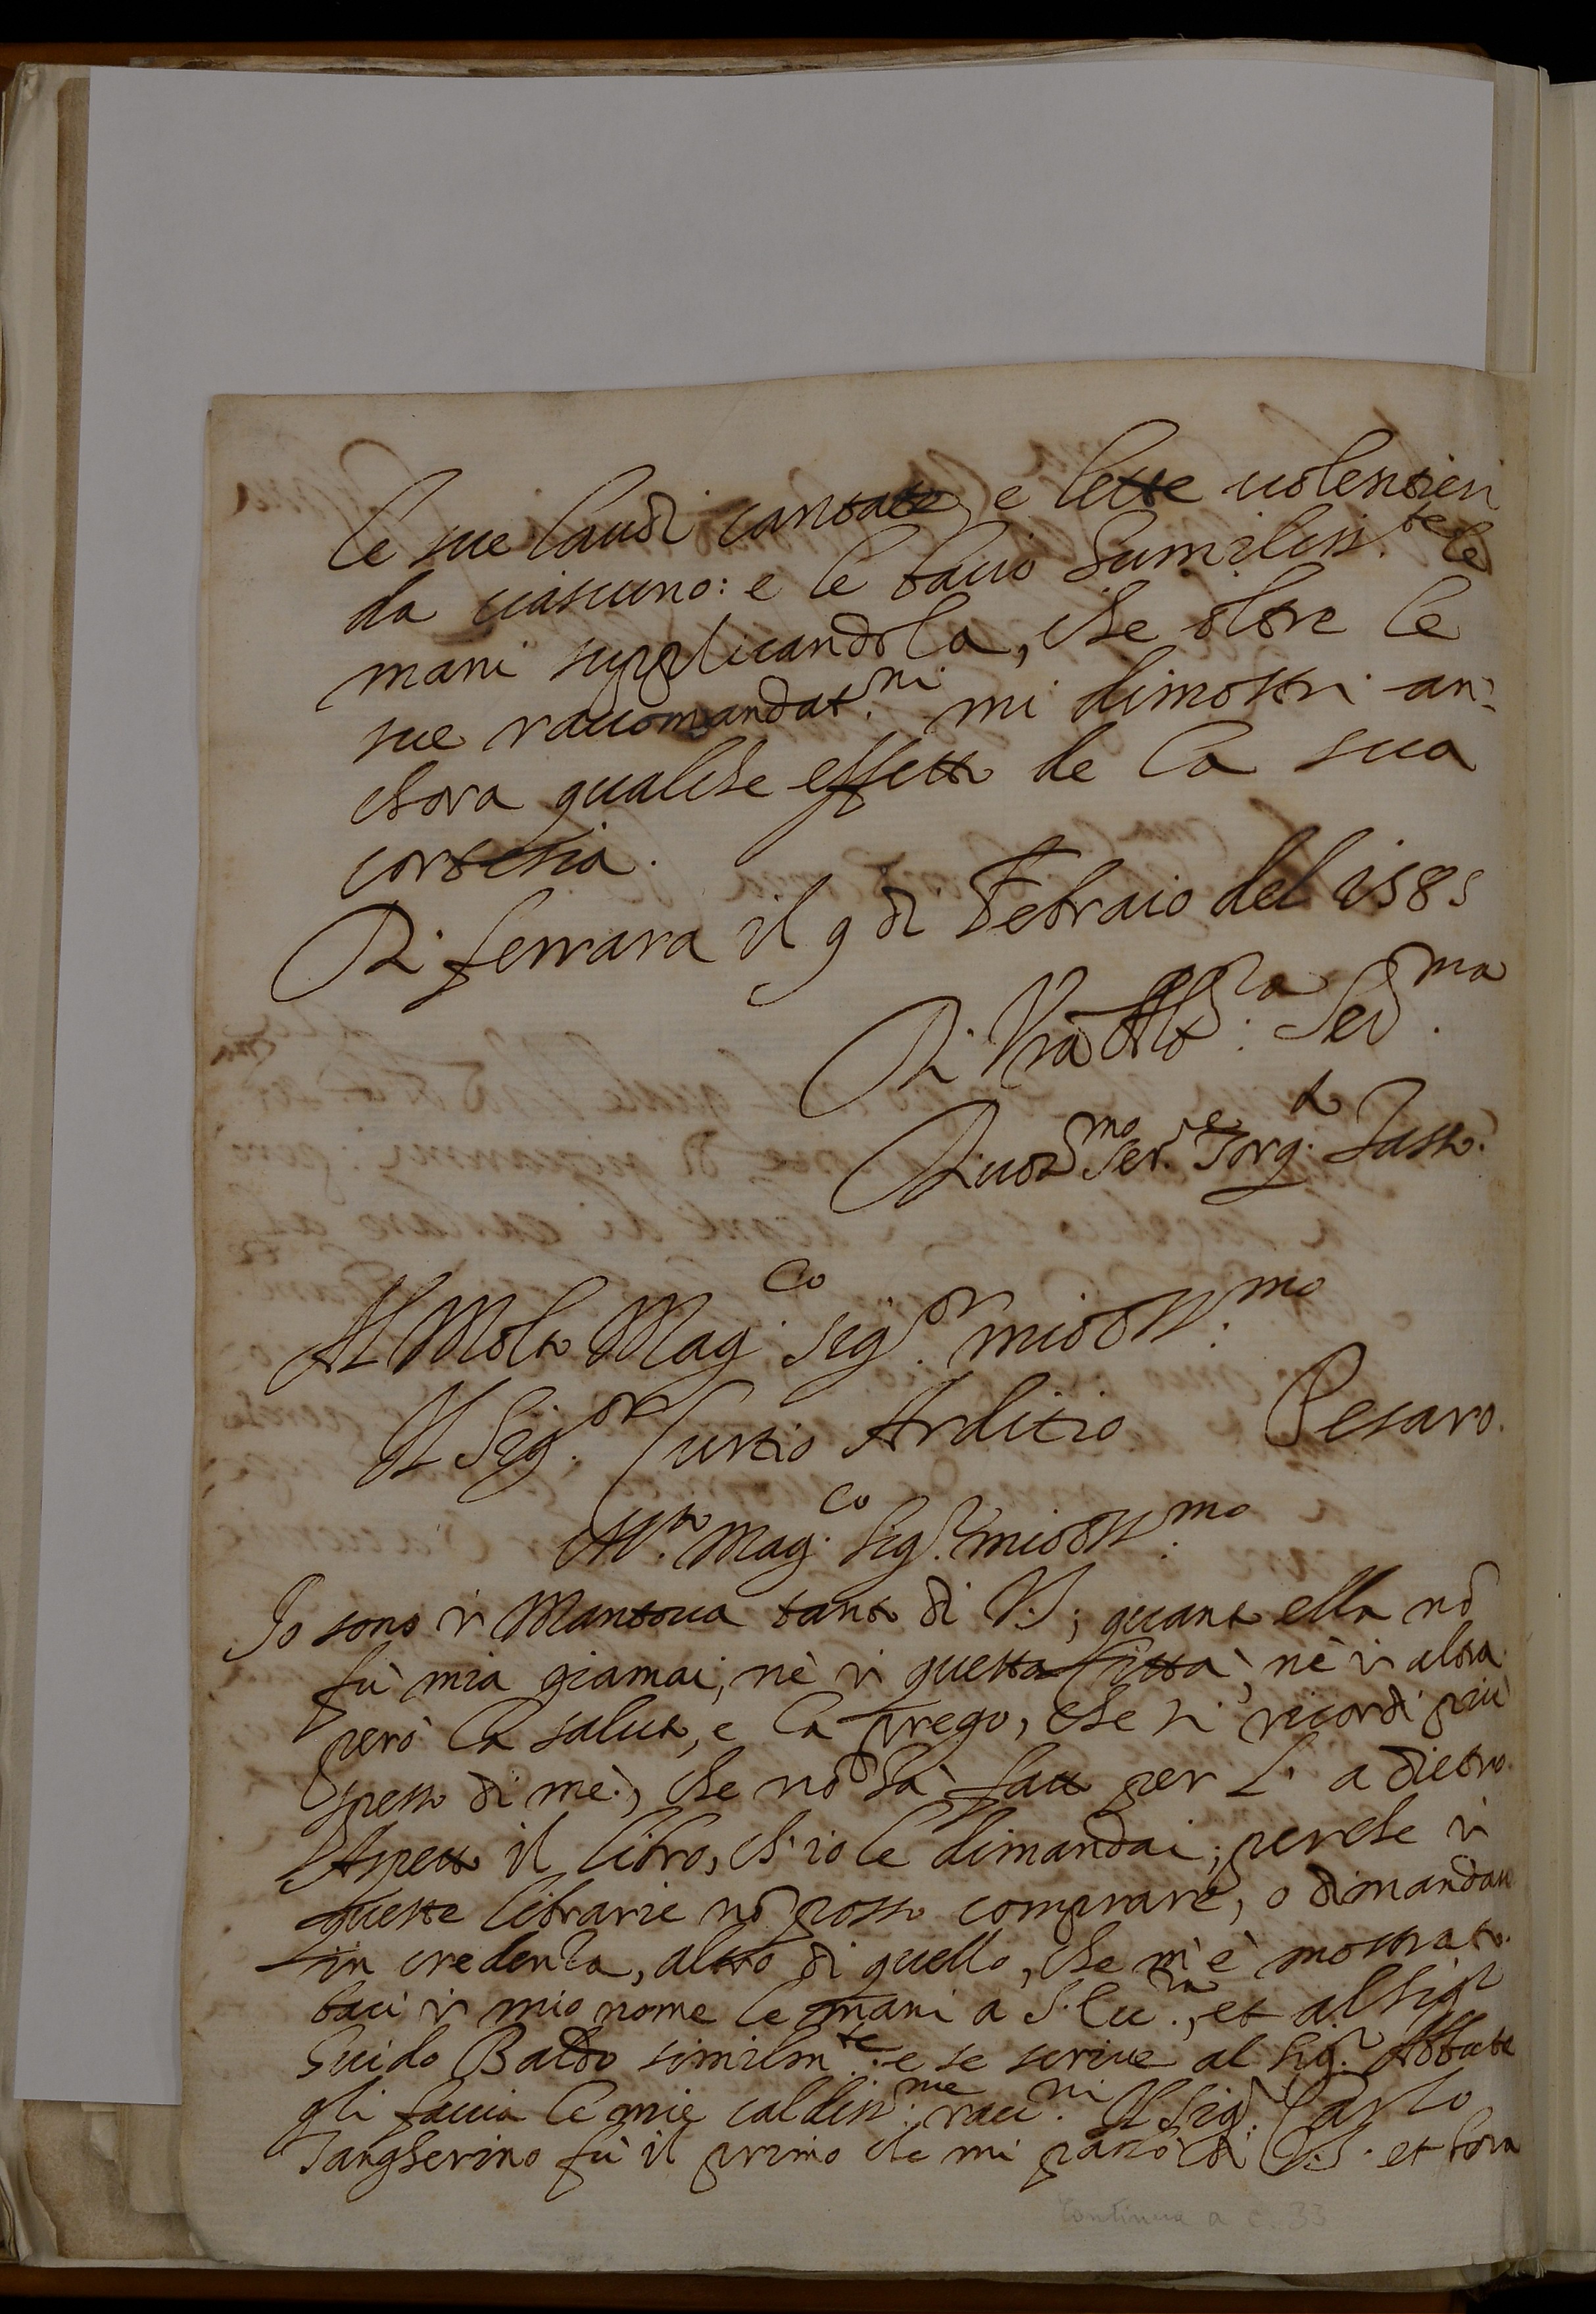 le sue laudi cantate, e lette uolentieri
da ciascuno: e le bacio humiliss.te le
mani supplicandola, che oltre le
sue raccomandat.ni mi dimostri an-
chora qualche effetto de la sua
cortesia.
Di ferrara il 9 di Febraio del 1585
Di Vra Altza: Ser.ma
Diuotmo Ser.re Torq.to Tasso.
Al Molto Mag.co Sig.or mio oss.mo
Il Sig.or Curtio Arditio Pesaro.
M.to Mag.co Sig.r mio oss.mo
Io sono i Mantoua tanto di V.S; quanto ella nō
fù mia giamai, nè i questa Città, nè i altra
però la saluto, e la prego, che si ricordi più
spesso di mè, che nō ha fatto per l' a dietro.
Aspetto il libro, ch'io le dimandai; perche i
queste librarie nō posso comprare, o dimandare
in credenza, altro di quello, che m'è mostrato.
baci i mio nome le mani a S. Ecc.za, et al Sigr
Guido Baldo similm.te: e se scriue al Sig.r Abbate
gli faccia le mie caldiss.me racc.ni Il Sig.r Carlo
Tangherino fù il primo che mi parlò di V.S. et hora
Continua a c. 33